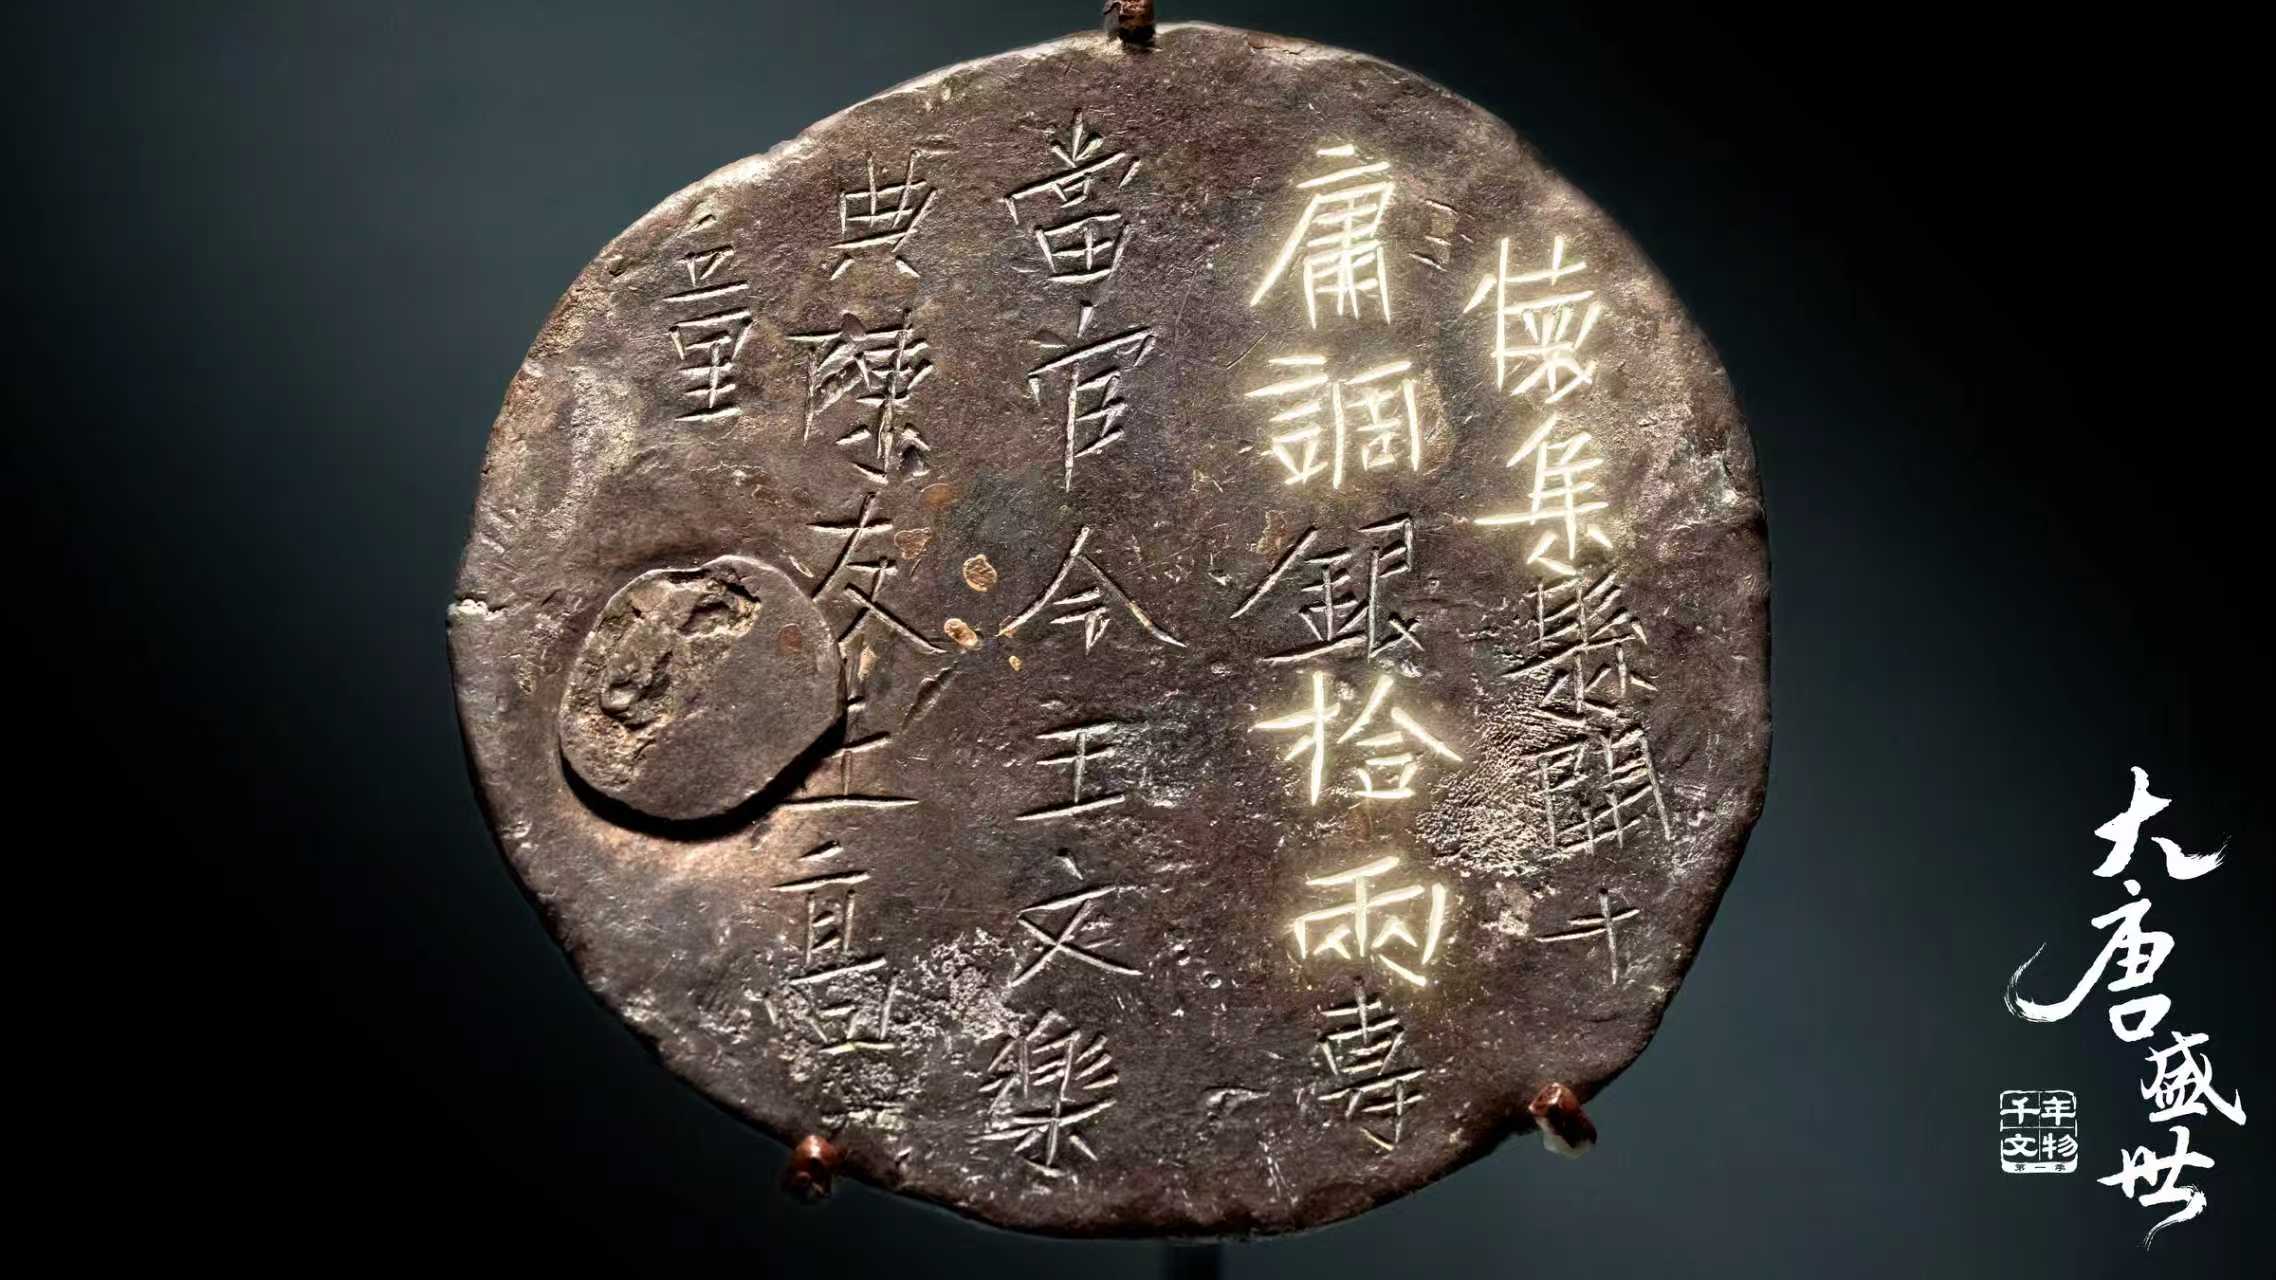 懷集縣開十
庸調銀拾兩專
當官令王文樂
典陳友匠高
童
大唐盛世
千年
文物
第一季